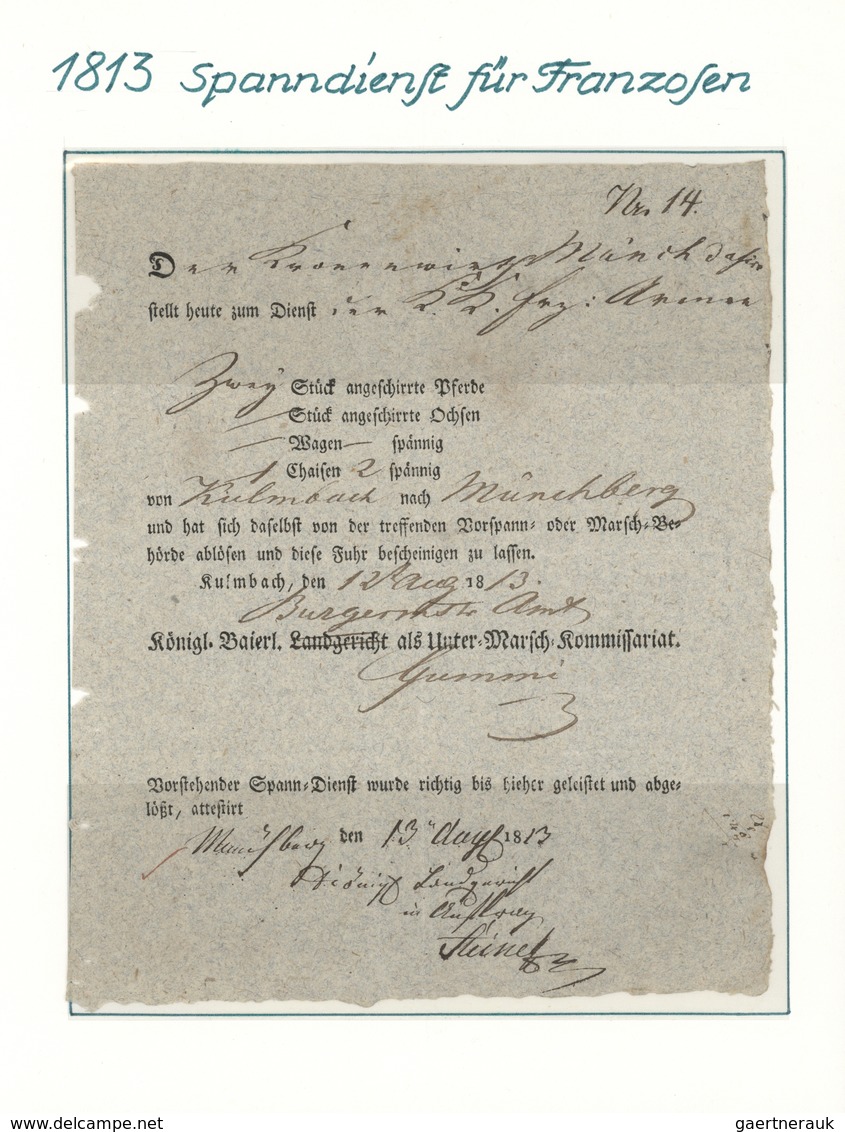 1813 Spanndienst für Franzosen
Nr. 14.
Der Kronenwirt Münch dahier
stellt heute zum Dienst der K. K. frz: Armee
Zwey Stück angeschirrte Pferde
— Stück angeschirrte Ochsen
— Wagen — spännig
1 Chaisen 2 spännig
von Kulmbach nach Münchberg
und hat sich daselbst von der treffenden Vorspann- oder Marsch-Be-
hörde ablösen und diese Fuhr bescheinigen zu lassen.
Kulmbach, den 12 Aug 1813.
Burgermstr Amt
Königl. Baierl. Landgericht als Unter-Marsch-Kommissariat.
Gummi
Vorstehender Spann-Dienst wurde richtig bis hieher geleistet und abge-
lößt, attestirt
Münchberg den 13 Aug 1813
Königl Landgericht
in Auftrag
www.delcampe.net
gaertnerauk